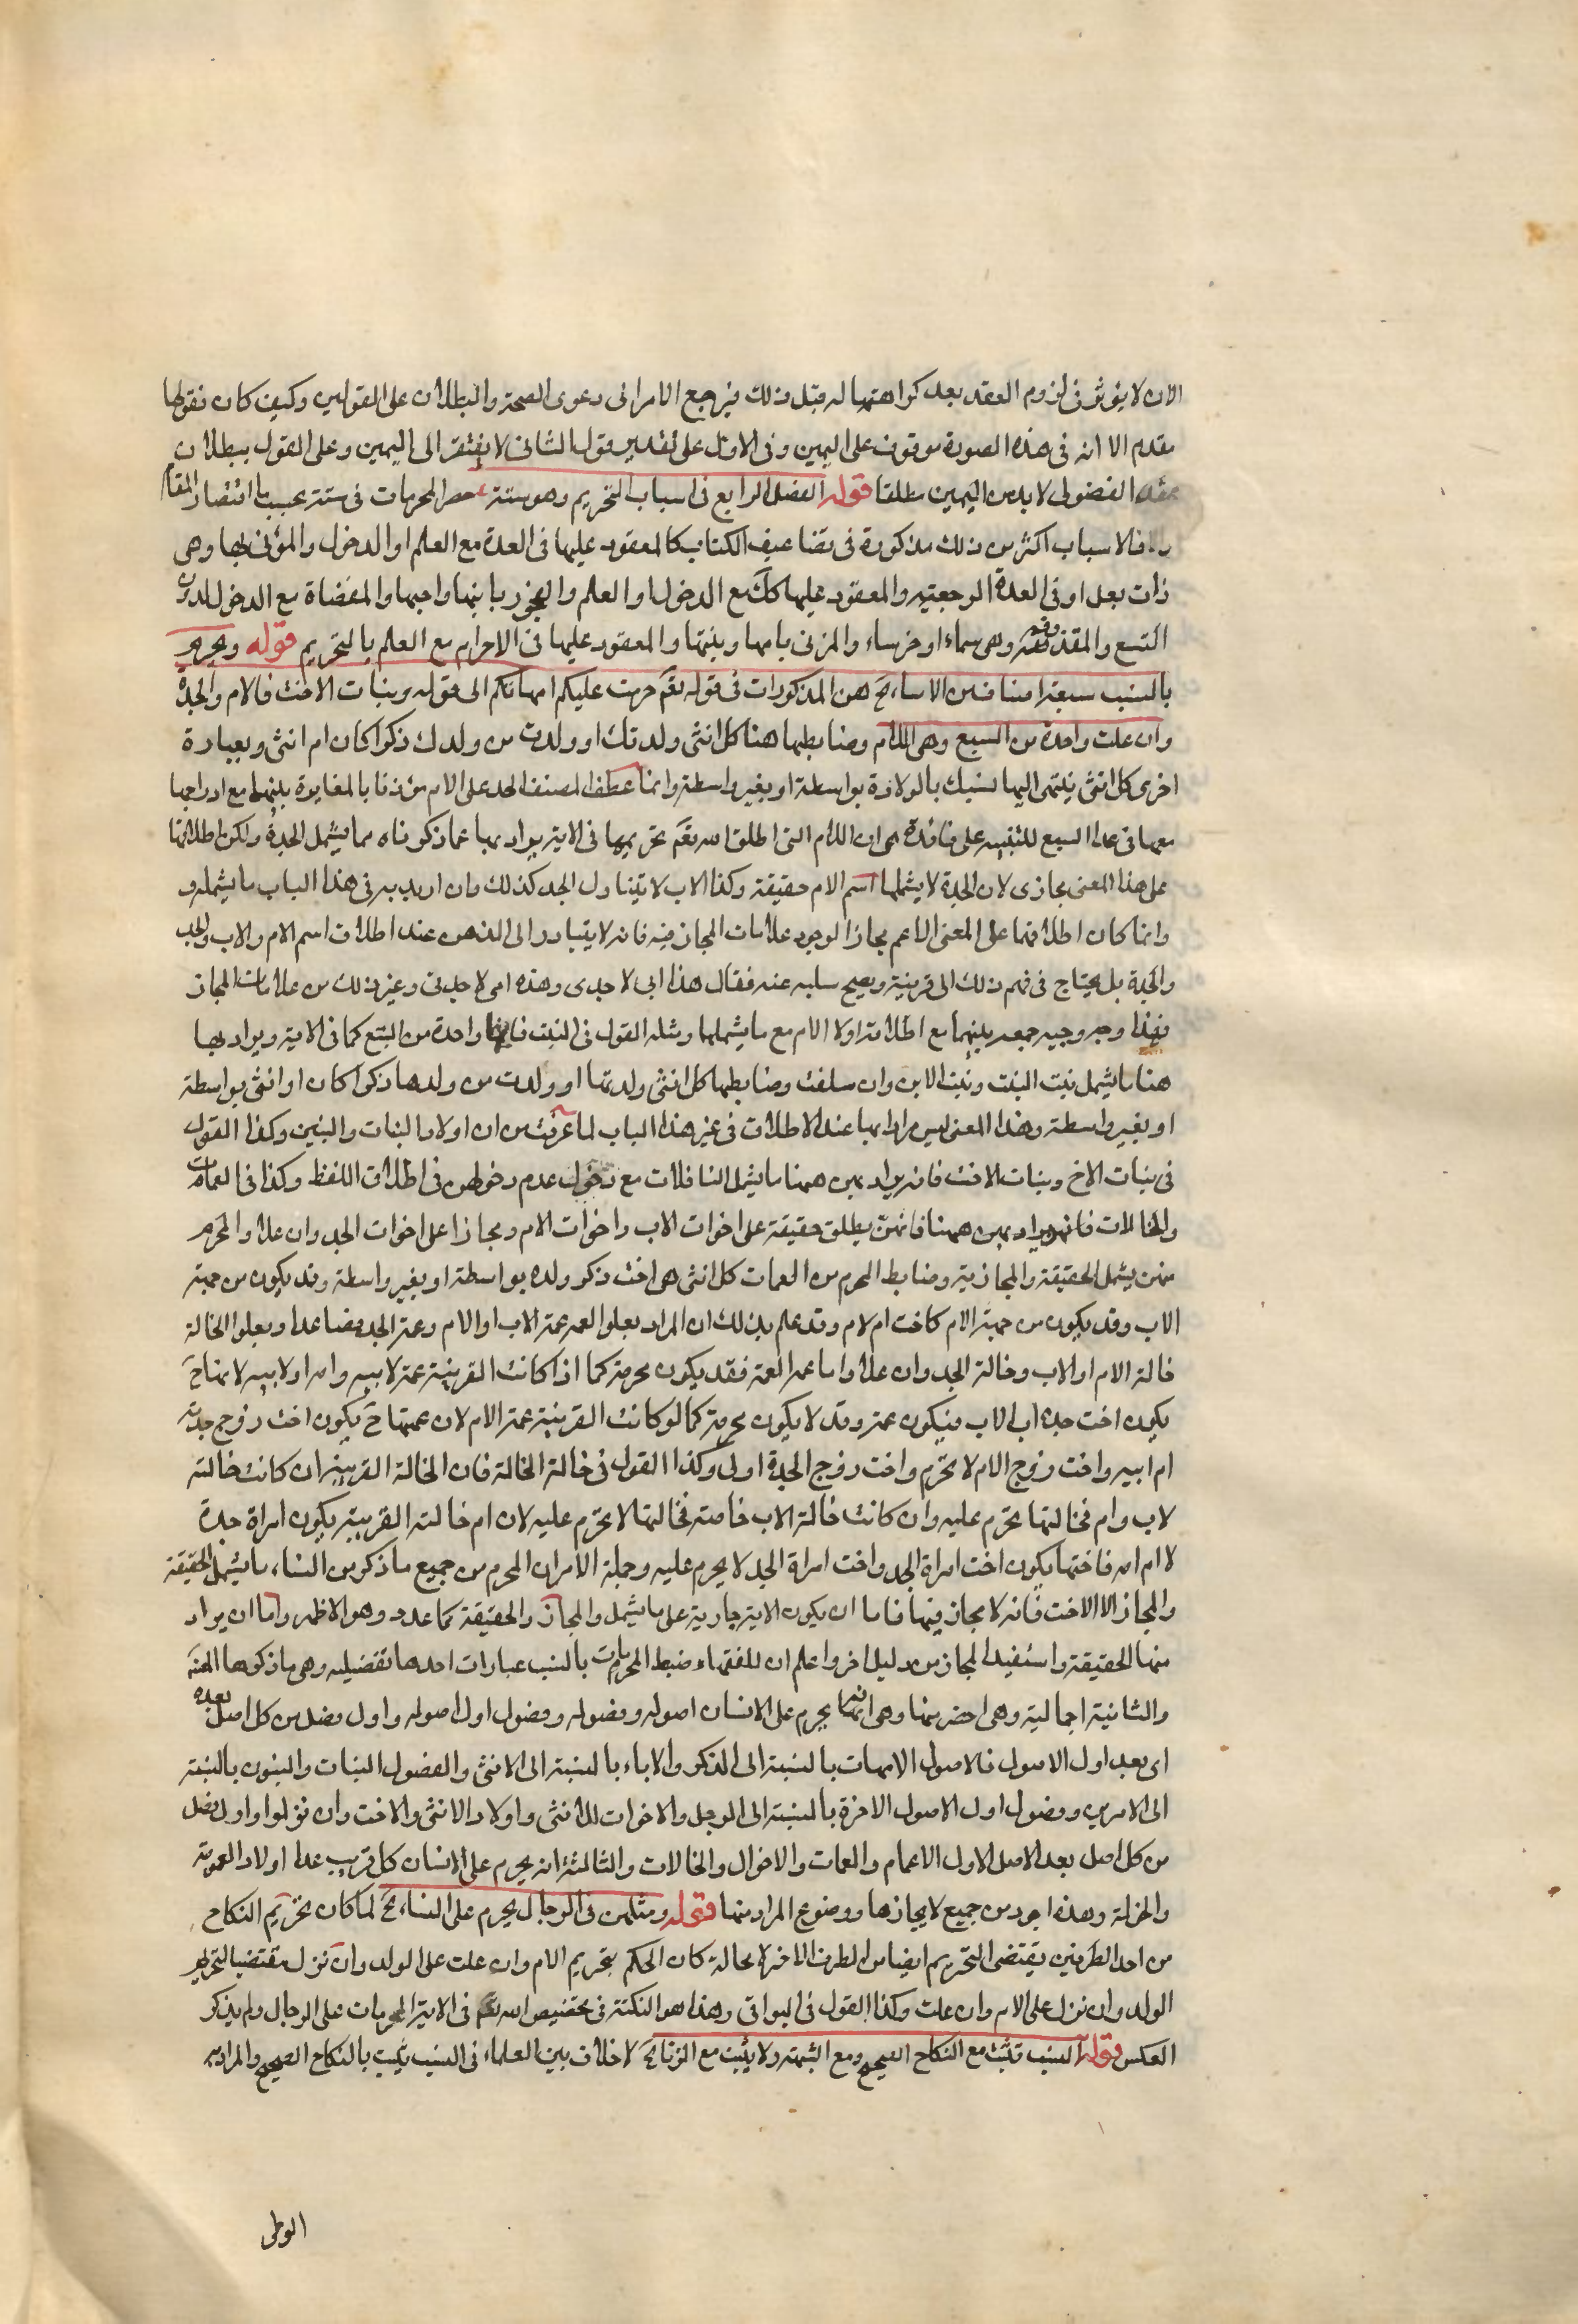 الان لا يؤثر فى لزوم العقد بعد كراهتها له قبل ذلك فيرجع الامر الى دعوى الصحة والبطلان على القولين وكيف كان فقولها
مقدم الا انه فى هذه الصورة موقوف على اليمين وفى الاول على تقدير قول الثانى لا يفتقر الى اليمين وعلى القول ببطلان
عقد الفضولى لا بد من اليمين مطلقا قوله الفصل الرابع فى اسباب التحريم وهو ستة حصر المحرمات فى ستة بحسب ما اقتضاه المقام
والا فالاسباب اكثر من ذلك مذكورة فى تضاعيف الكتاب كالمعقود عليها فى العدة مع العلم او الدخول والمزنى بها وهى
ذات بعل او فى العدة الرجعية والمعقود عليها كك مع الدخول او العلم والفجور بابنها واخيها والمفضاة مع الدخول لدون
التسع والمقذوفة وهى صماء او خرساء والمزنى بامها وبنتها والمعقود عليها فى الاحرام مع العلم بالتحريم قوله ويحرم
بالنسب سبعة اصناف من النساء الخ هن المذكورات فى قوله تعم حرمت عليكم امهاتكم الى قوله وبنات الاخت فالام والجدة
وان علت واحدة من السبع وهى الام وضابطها هنا كل انثى ولدتك او ولدت من ولدك ذكرا كان ام انثى وبعبارة
اخرى كل انثى ينتهى اليها نسبك بالولادة بواسطة او بغير واسطة وانما عطف المصنف الجد على الام مؤذنا بالمغايرة بينهما مع ادراجها
معها فى عداد السبع للتنبيه على فائدة هى ان الام التى اطلق الله تعم تحريمها فى الاية يراد بها عما ذكرناه مما يشمل الجدة ولكن اطلاقها
على هذا المعنى مجازى لان الجدة لا يشملها اسم الام حقيقة وكذا الاب لا يتناول الجد كذلك وان اريد به فى هذا الباب ما يشمله و
وانما كان اطلاقها على المعنى الاعم مجازا لوجود علامات المجاز فيه فانه لا يتبادر الى الذهن عند اطلاق اسم الام والاب والجد
والجدة بل يحتاج فى فهم ذلك الى قرينة ويصح سلبه عنه فيقال هذا ابى لا جدى وهذه امى لا جدتى وغير ذلك من علامات المجاز
فهذا وجه وجيه جمعه بينهما مع اطلاقه اولا الام مع ما يشملها ومثله القول فى البنت فانها واحدة من السبع كما فى الاية ويراد بها
هنا ما يشمل بنت البنت وبنت الابن وان سفلت وضابطها كل انثى ولدتها او ولدت من ولدها ذكرا كان او انثى بواسطة
او بغير واسطة وهذا المعنى ليس مرادا بها عند الاطلاق فى غير هذا الباب لما عرفت من ان اولاد البنات والبنين وكذا القول
فى بنات الاخ وبنات الاخت فانه يراد بهن ههنا ما يشمل السافلات مع عدم دخولهن فى اطلاق اللفظ وكذا فى العمات
والخالات فانه يراد بهن ههنا فانهن يطلق حقيقة على اخوات الاب واخوات الام ومجازا على اخوات الجد وان علا والمحرم
منهن يشمل الحقيقة والمجازية وضابط المحرم من العمات كل انثى هى اخت ذكر ولده بواسطة او بغير واسطة وقد يكون من جهة
الاب وقد يكون من جهة الام كاخت ام لام وقد علم بذلك ان المراد بعلو العمة عمة الاب او الام وعمة الجد فصاعدا وبعلو الخالة
خالة الام او الاب وخالة الجد وان علا واما عمه العمة فقد يكون محرمة كما اذا كانت القريبة عمة لابيه وامه او لابيه لانها ح
يكون اخت جده اب الاب فيكون عمة وقد لا يكون محرمة كما لو كانت القريبة عمة الام لان عمتها ح يكون اخت زوج جدته
ام ابيه واخت زوج الام لا تحرم واخت زوج الجدة اولى وكذا القول فى خالة الخالة فان الخالة القريبة ان كانت خالته
لاب وام فخالتها تحرم عليه وان كانت خالة الاب خاصة فخالتها لا تحرم عليه لان ام خالته القريبة يكون امراة جده
لا ام امه فاختها يكون اخت امراة الجد واخت امراة الجد لا يحرم عليه وجملة الامر ان المحرم من جميع ما ذكر من النساء ما يشمل الحقيقة
والمجاز الا الاخت فانه لا مجاز فيها فاما ان يكون الاية جارية على ما يشمل والمجاز والحقيقة كما عدد وهو الاظهر واما ان يراد
منها الحقيقة واستفيد المجاز من دليل اخر واعلم ان للفقهاء ضبط المحرمات بالنسب عبارات احدها تفصيليه وهى ما ذكرها المصنف
والثانية اجمالية وهى احضر منها وهى انه يحرم على الانسان اصوله وفصوله وفصول اول اصوله واول فصل من كل اصل بعده
اى بعد اول الاصول فالاصول الامهات بالنسبة الى الذكر والاباء بالنسبة الى الانثى والفصول البنات والبنون بالنسبة
الى الامرين وفصول اول الاصول الاخوة بالنسبة الى الرجل والاخوات للانثى واولاد الانثى والاخت وان نزلوا واول فصل
من كل اصل بعد الاصل الاول الاعمام والعمات والاخوال والخالات والثالثة انه يحرم على الانسان كل قريب عدا اولاد العمومة
والخؤلة وهذه اجود من جميع لايجازها ووضوح المراد منها قوله ومثلهن فى الرجال يحرم على النساء الخ لما كان تحريم النكاح
من احد الطرفين يقتضى التحريم ايضا من الطرف الاخر لا محالة كان الحكم بتحريم الام وان علت على الولد وان نزل مقتضيا لتحريم
الولد وان نزل على الام وان علت وكذا القول فى البواقى وهذا هو النكتة فى تخصيص الله تعم فى الاية المحرمات على الرجال ولم يذكر
العكس قوله النسب تثبت مع النكاح الصحيح ومع الشبهة ولا يثبت مع الزنا الخ لا خلاف بين العلماء فى النسب يثبت بالنكاح الصحيح والمراد به
الوطى